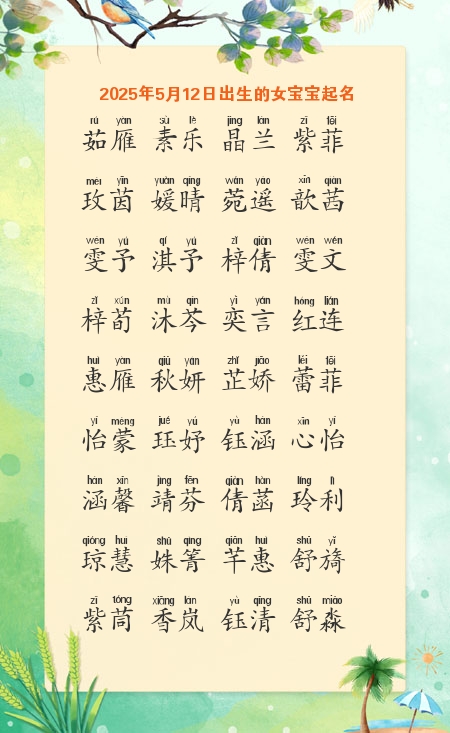 2025年5月12日出生的女宝宝起名
rú yàn sù lè jīng lán zǐ fēi
茹雁 素乐 晶兰 紫菲
méi yīn yuàn qíng wǎn yáo xīn qiàn
玫茵 媛晴 菀遥 歆茜
wén yǔ qí yǔ zǐ qiàn wén wén
雯予 淇予 梓倩 雯文
zǐ xún mù qín yì yán hóng lián
梓荀 沐芩 奕言 红连
huì yàn qiū yán zhǐ jiāo lěi fēi
惠雁 秋妍 芷娇 蕾菲
yí méng jué yú yù hán xīn yí
怡蒙 珏妤 钰涵 心怡
hán xīn jìng fēn qiàn hàn líng lì
涵馨 靖芬 倩菡 玲利
qióng huì shū qīng qiān huì shū yǐ
琼慧 姝箐 芊惠 舒旖
zǐ tóng xiāng lán yù qīng shū miǎo
紫茼 香岚 钰清 舒淼